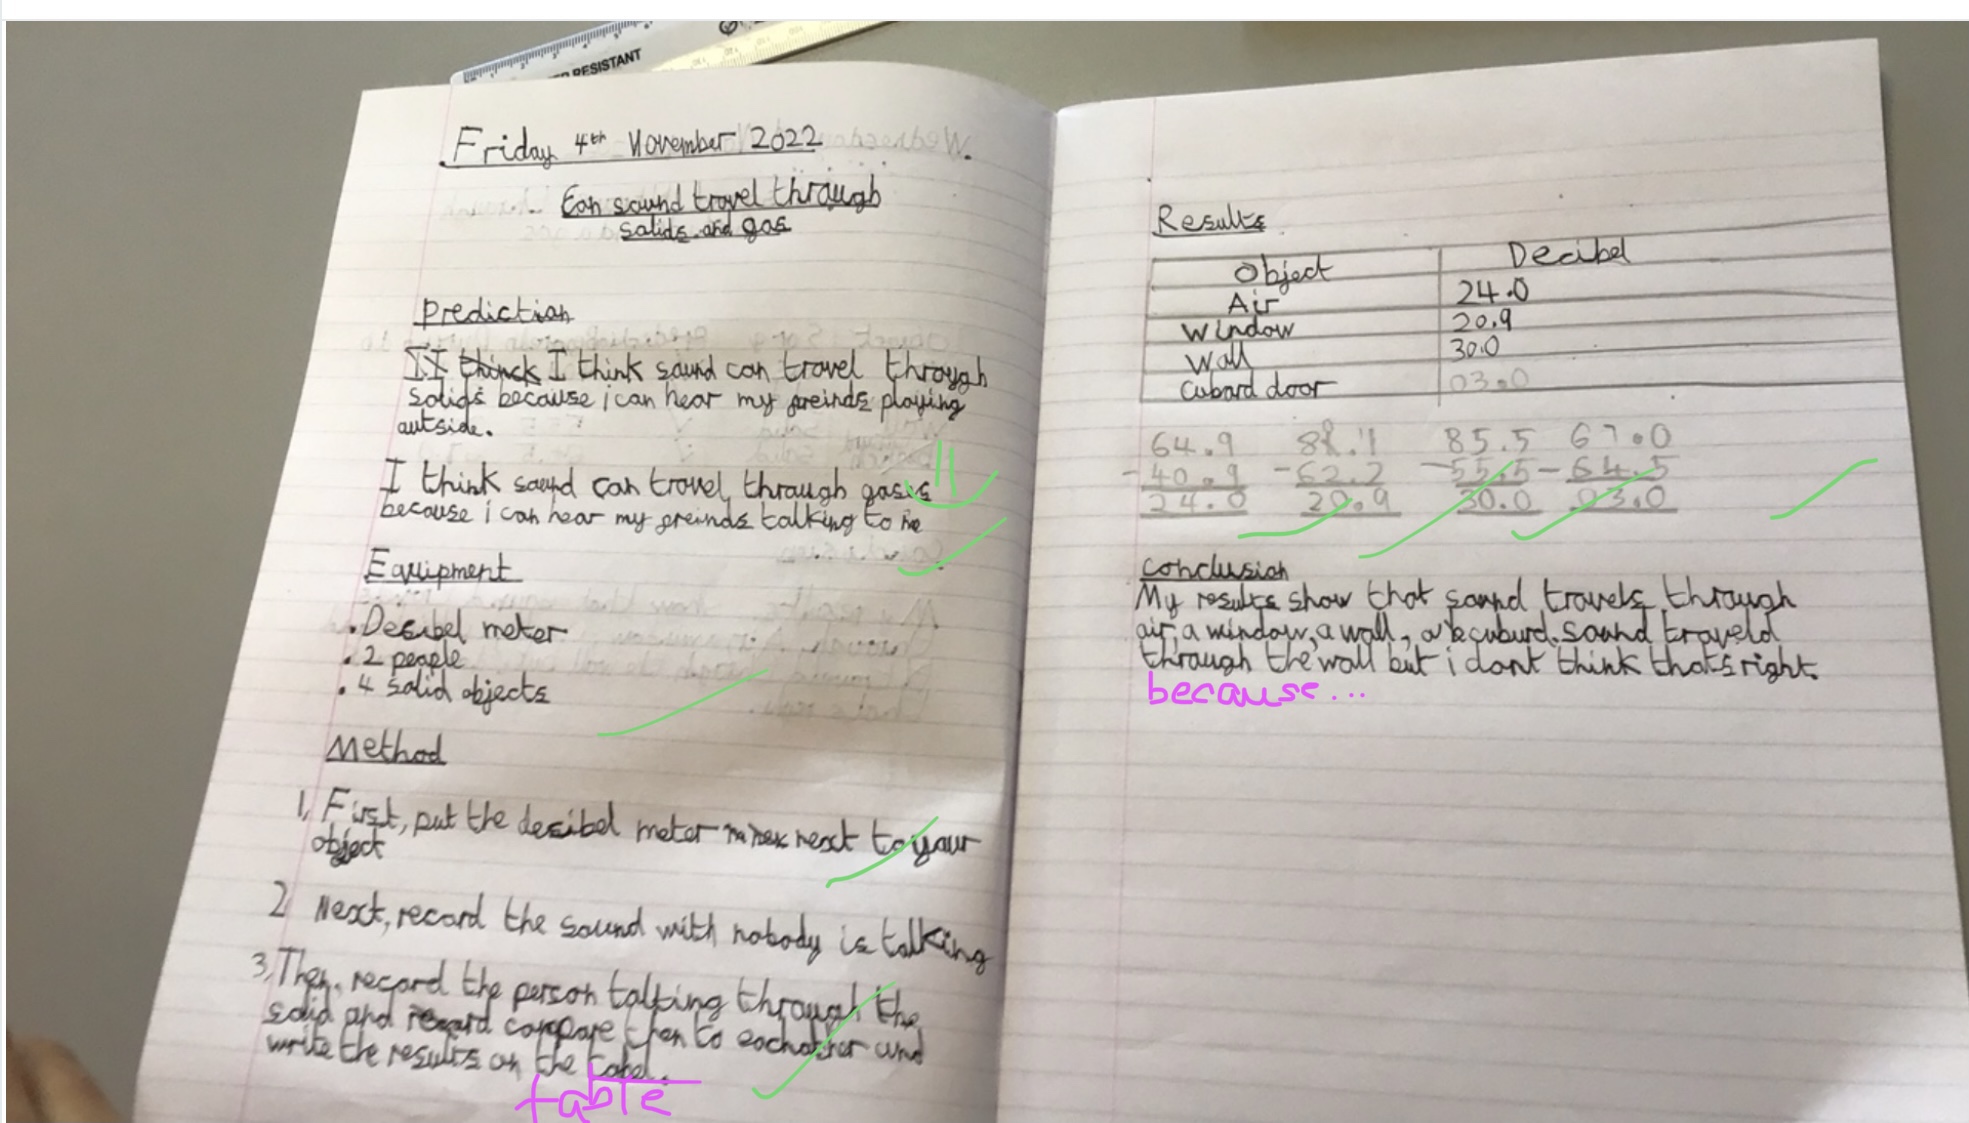 RESISTANT
Friday 4th November 2022
Can sound travel through
solids and gas
Prediction
II thinck I think sound can travel through
solids because i can hear my freinds playing
outside.
I think sound can travel through gases
because i can hear my freinds talking to me
Equipment
• Desibel meter
• 2 people
• 4 solid objects
Method
1, First, put the desibel meter next to your
object
2 Next, record the sound with nobody is talking
3, Then, record the person talking through the
solid and record compare them to eachother and
write the results on the tabel.
table
Results
Object Decibel
Air 24.0
Window 20.9
Wall 30.0
Cubard door 03.0
64.9 85.5 67.0
-40.9 -62.2 -55.5 -64.5
24.0 20.9 30.0 03.0
Conclusion
My results show that sound travels through
air, a window, a wall, a cuburd. Sound traveld
through the wall but i dont think thats right.
because...